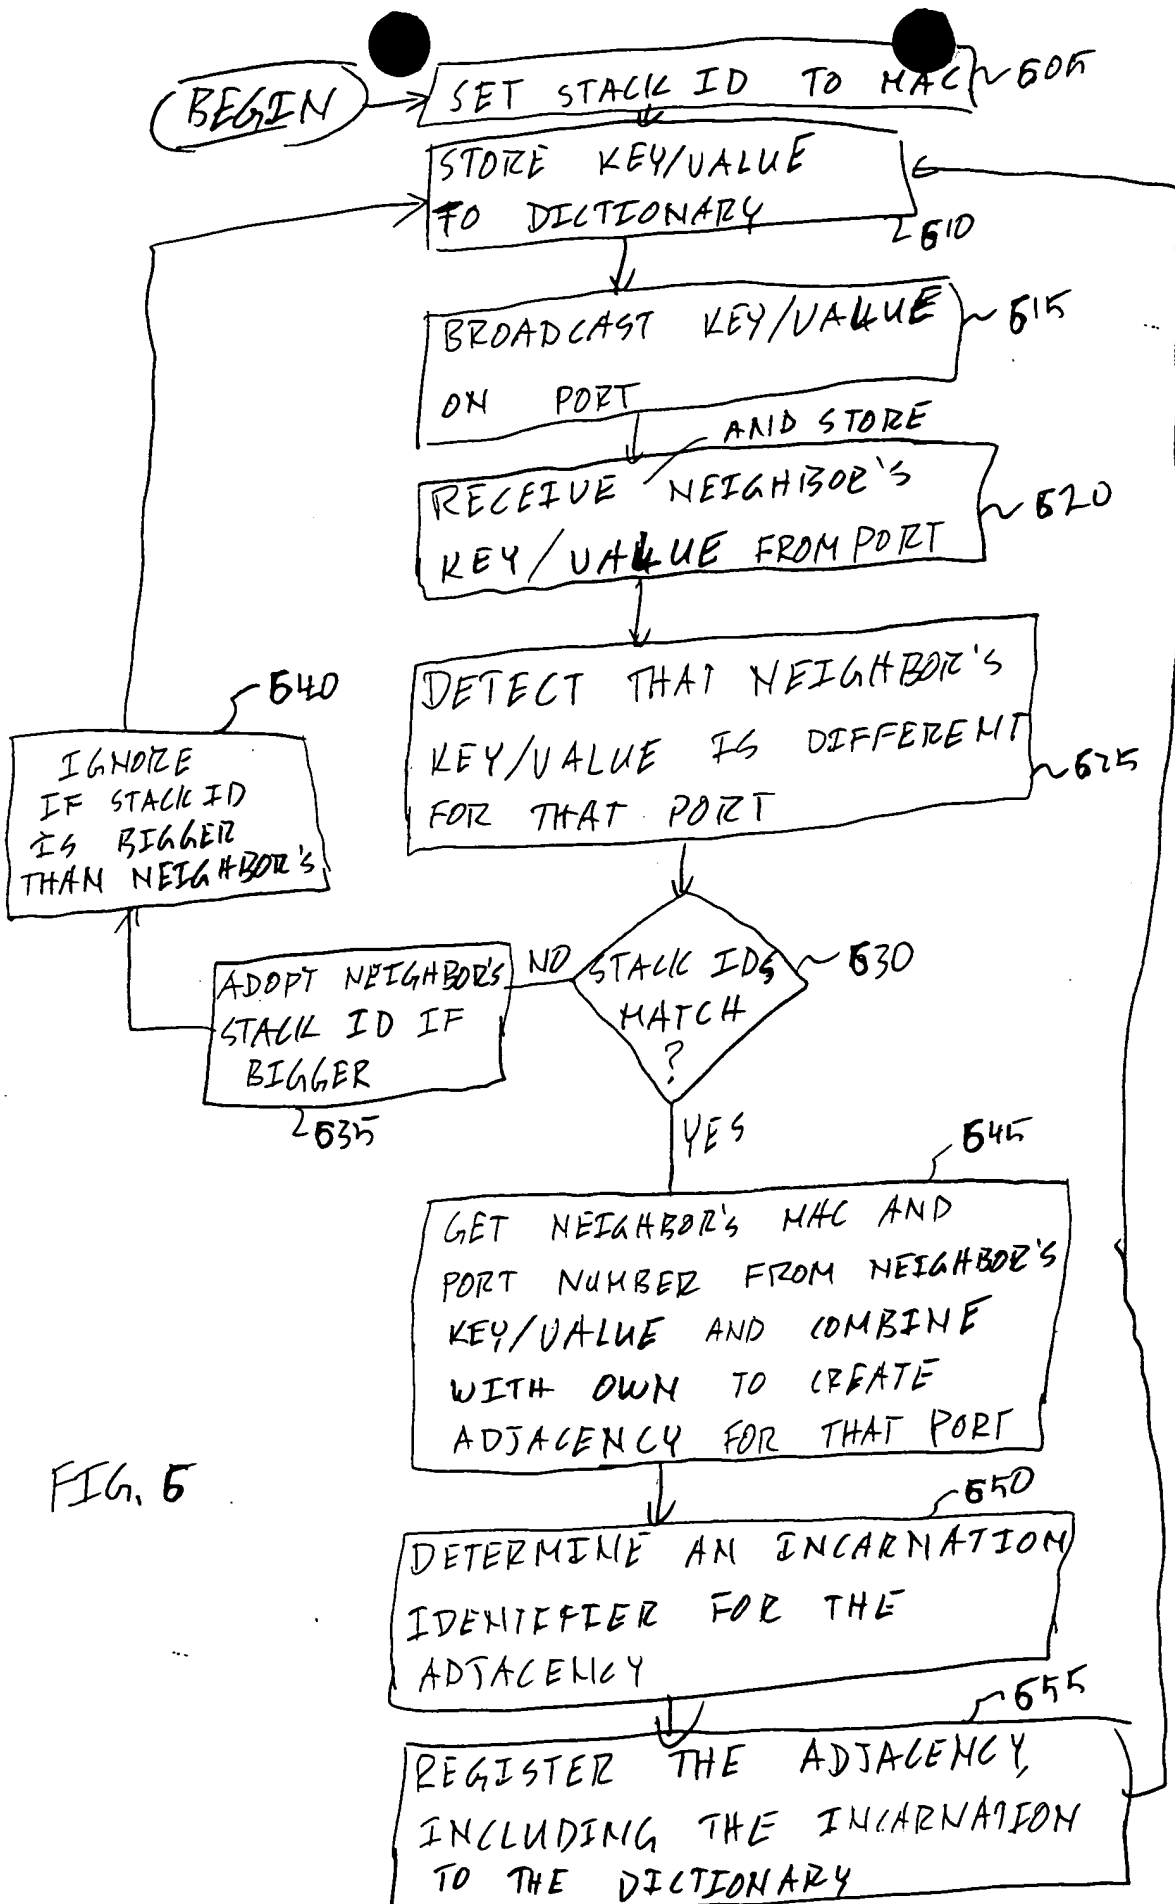 BEGIN
SET STACK ID TO MAC
605
STORE KEY/VALUE
TO DICTIONARY
610
BROADCAST KEY/VALUE
ON PORT
615
AND STORE
RECEIVE NEIGHBOR'S
KEY/VALUE FROM PORT
620
DETECT THAT NEIGHBOR'S
KEY/VALUE IS DIFFERENT
FOR THAT PORT
625
640
IGNORE
IF STACK ID
IS BIGGER
THAN NEIGHBOR'S
STACK IDS
MATCH
?
630
NO
ADOPT NEIGHBOR'S
STACK ID IF
BIGGER
635
YES
645
GET NEIGHBOR'S MAC AND
PORT NUMBER FROM NEIGHBOR'S
KEY/VALUE AND COMBINE
WITH OWN TO CREATE
ADJACENCY FOR THAT PORT
FIG. 6
650
DETERMINE AN INCARNATION
IDENTIFIER FOR THE
ADJACENCY
655
REGISTER THE ADJACENCY,
INCLUDING THE INCARNATION
TO THE DICTIONARY